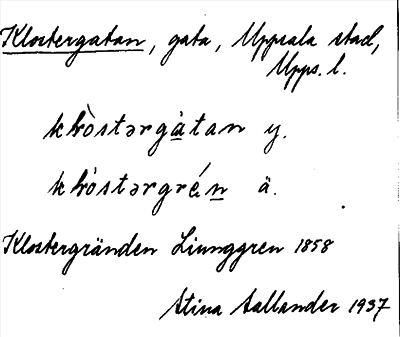 Klostergatan, gata, Uppsala stad,
Upps. l.
klòstərgàtan y.
klóstərgrén ä.
Klostergränden Ljunggren 1858
Stina Sallander 1937